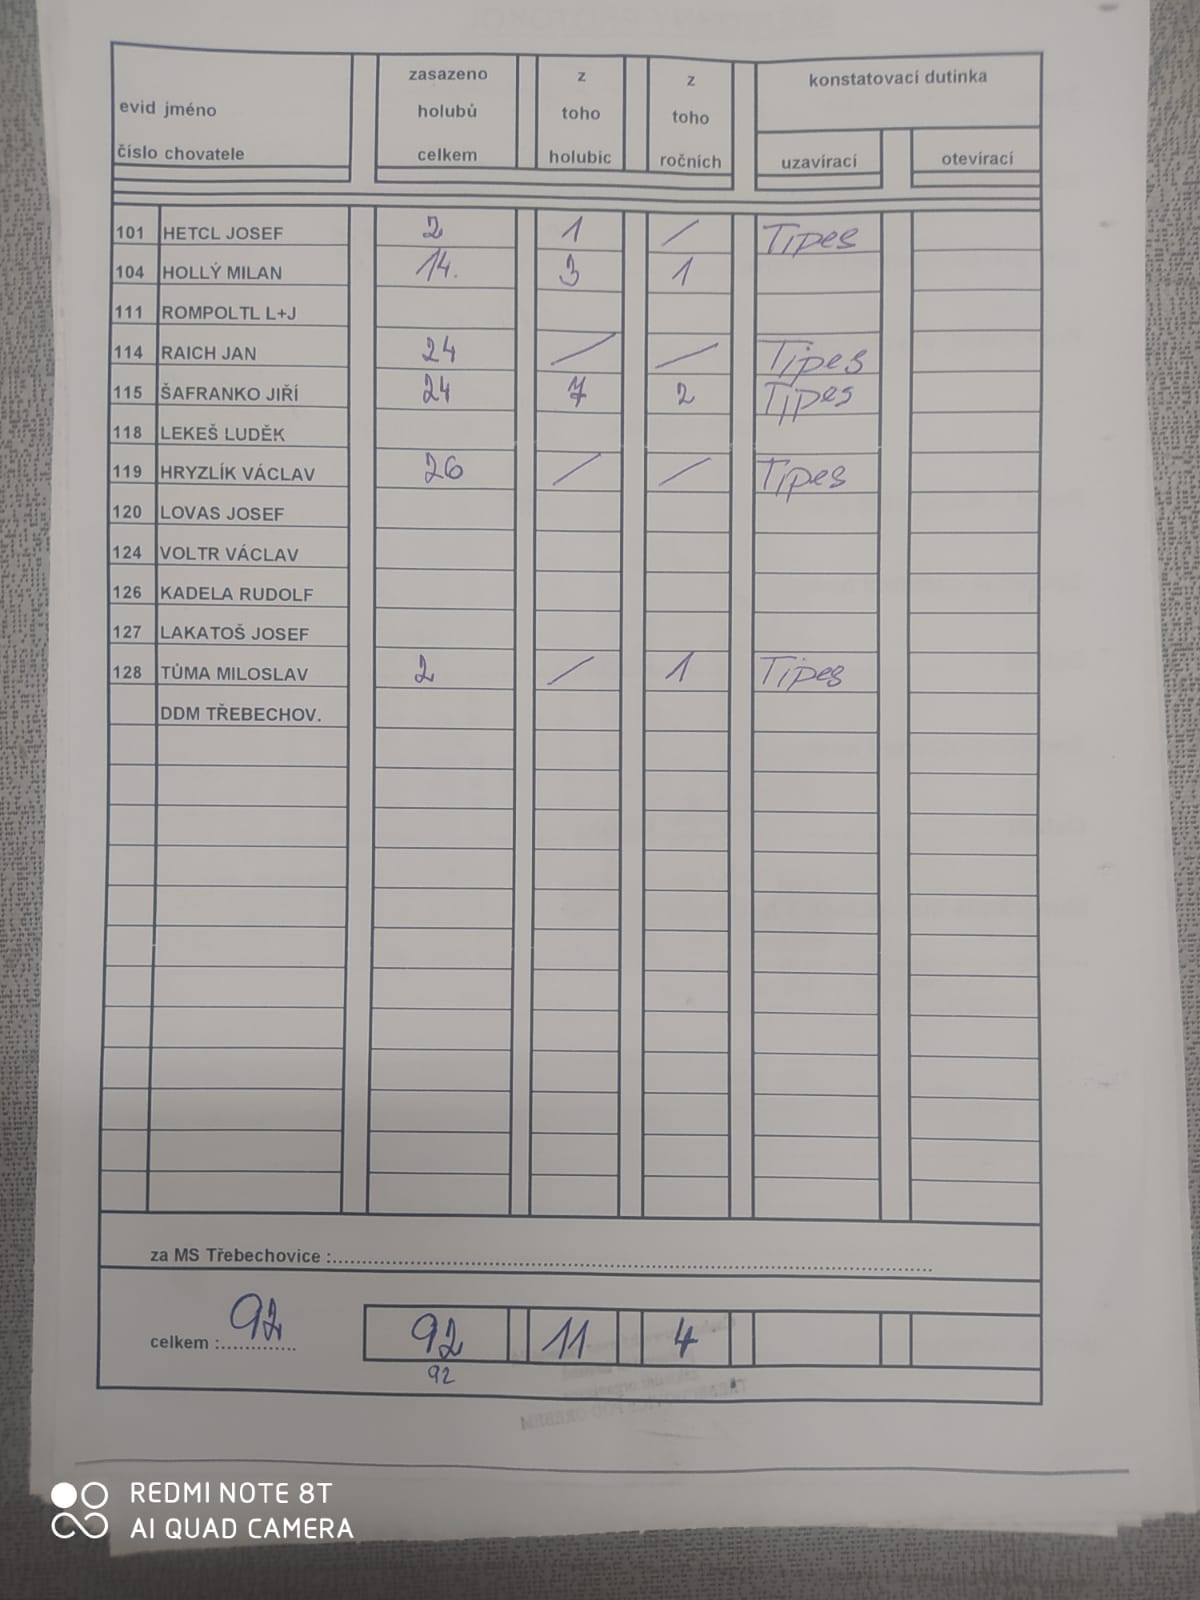 evid jméno
číslo chovatele
zasazeno
holubů
celkem
z
toho
holubic
z
toho
ročních
konstatovací dutinka
uzavírací
otevírací
101 HETCL JOSEF 2 1 / Tipes
104 HOLLÝ MILAN 14. 3 1
111 ROMPOLTL L+J
114 RAICH JAN 24 / / Tipes
115 ŠAFRANKO JIŘÍ 24 7 2 Tipes
118 LEKEŠ LUDĚK
119 HRYZLÍK VÁCLAV 26 / / Tipes
120 LOVAS JOSEF
124 VOLTR VÁCLAV
126 KADELA RUDOLF
127 LAKATOŠ JOSEF
128 TŮMA MILOSLAV 2 / 1 Tipes
DDM TŘEBECHOV.
za MS Třebechovice :
celkem : 92 92 11 4
92
REDMI NOTE 8T
AI QUAD CAMERA